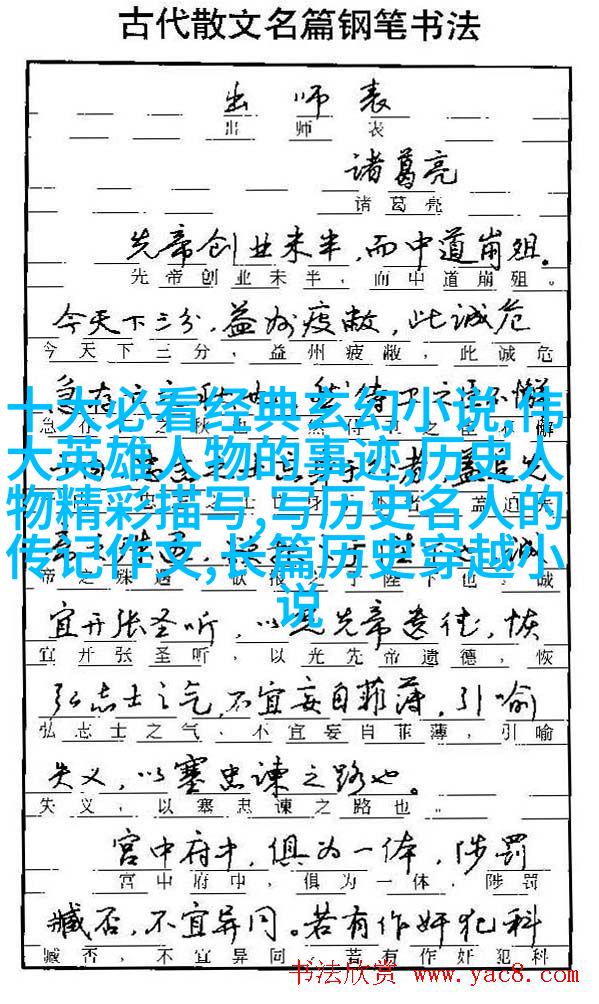 古代散文名篇钢笔书法
出师表
出师表
诸葛亮
诸葛亮
先帝创业未半，而中道崩殂。
先帝创业未半，而中道崩殂。
今天下三分，益州疲敝，此诚危
今天下三分，益州疲敝，此诚危
十大必看经典玄幻小说,伟
大英雄人物的事迹,历史人
物精彩描写,写历史名人的
传记作文,长篇历史穿越小
说
宜开张圣听，以光先帝遗德，恢
宜开张圣听，以光先帝遗德，恢
弘志士之气，不宜妄自菲薄，引喻
弘志士之气，不宜妄自菲薄，引喻
失义，以塞忠谏之路也。
失义，以塞忠谏之路也。
宫中府中，俱为一体，陟罚
宫中府中，俱为一体，陟罚
臧否，不宜异同。若有作奸犯科
臧否，不宜异同。若有作奸犯科
书法欣赏 www.yac8.com